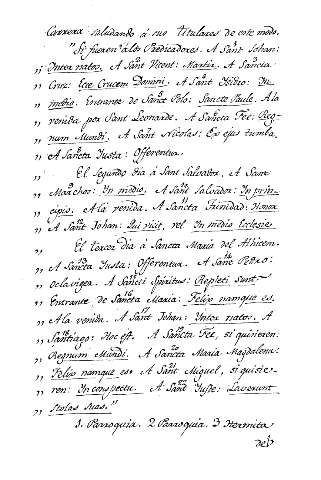 Carrera saludando á sus titulares de este modo.
"Si fueren á los Predicadores. A Sant Johan:
„ Inter natos. A Sant Vicent: Martir. A Sancta
„ Cruz: Ecce Crucem Domini. A Sant Isidro: In
„ medio. Entrante de Sanct Polo: Sancte Paule. A la
„ venida por Sant Leonarde. A Sancta Fee: Reg-
„ num Mundi. A Sant Nicolas: Ex ejus tumba.
„ A Sancta Iusta: Offerentur.
„ El segundo dia á Sant Salvador, A Sant
„ Marchor: In medio. A Sant Salvador: In prin-
„ cipio. A la venida. A Sancta Trinidad: Honor
„ A Sant Johan: Qui vicit, vel In medio Ecclesie.
„ El tercer dia á Sancta Maria del Alhicem.
„ A Sancta Iusta: Offerentur. A Sant Pedro:
„ Oclavigera. A Sancti Spiritus: Repleti sunt.
„ Entrante de Sancta Maria: Felix namque es.
„ A la venida. A Sant Johan: Inter natos. A
„ Santiago: Hoc est. A Sancta Fee, si quisieren:
„ Regnum Mundi. A Sancta Maria Magdalena:
„ Felix namque es. A Sant Miguel, si quisie-
„ ren: In conspectu. A Sant Iuste: Laverunt
„ stolas suas."
1. Parroquia. 2 Parroquia. 3 Hermita
del